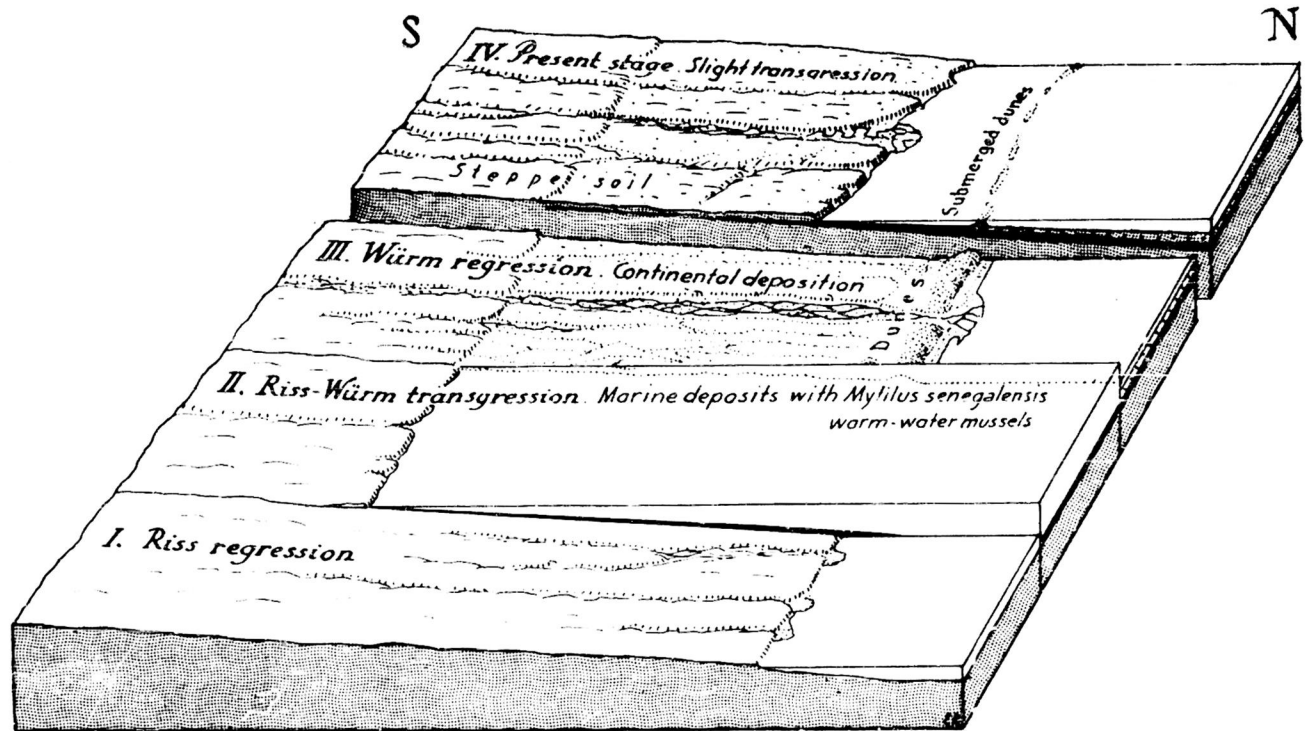 S
N
IV. Present stage Slight transgression
Submerged dunes
Steppe soil
III. Würm regression. Continental deposition
Dunes
II. Riss-Würm transgression. Marine deposits with Mytilus senegalensis
warm-water mussels
I. Riss regression